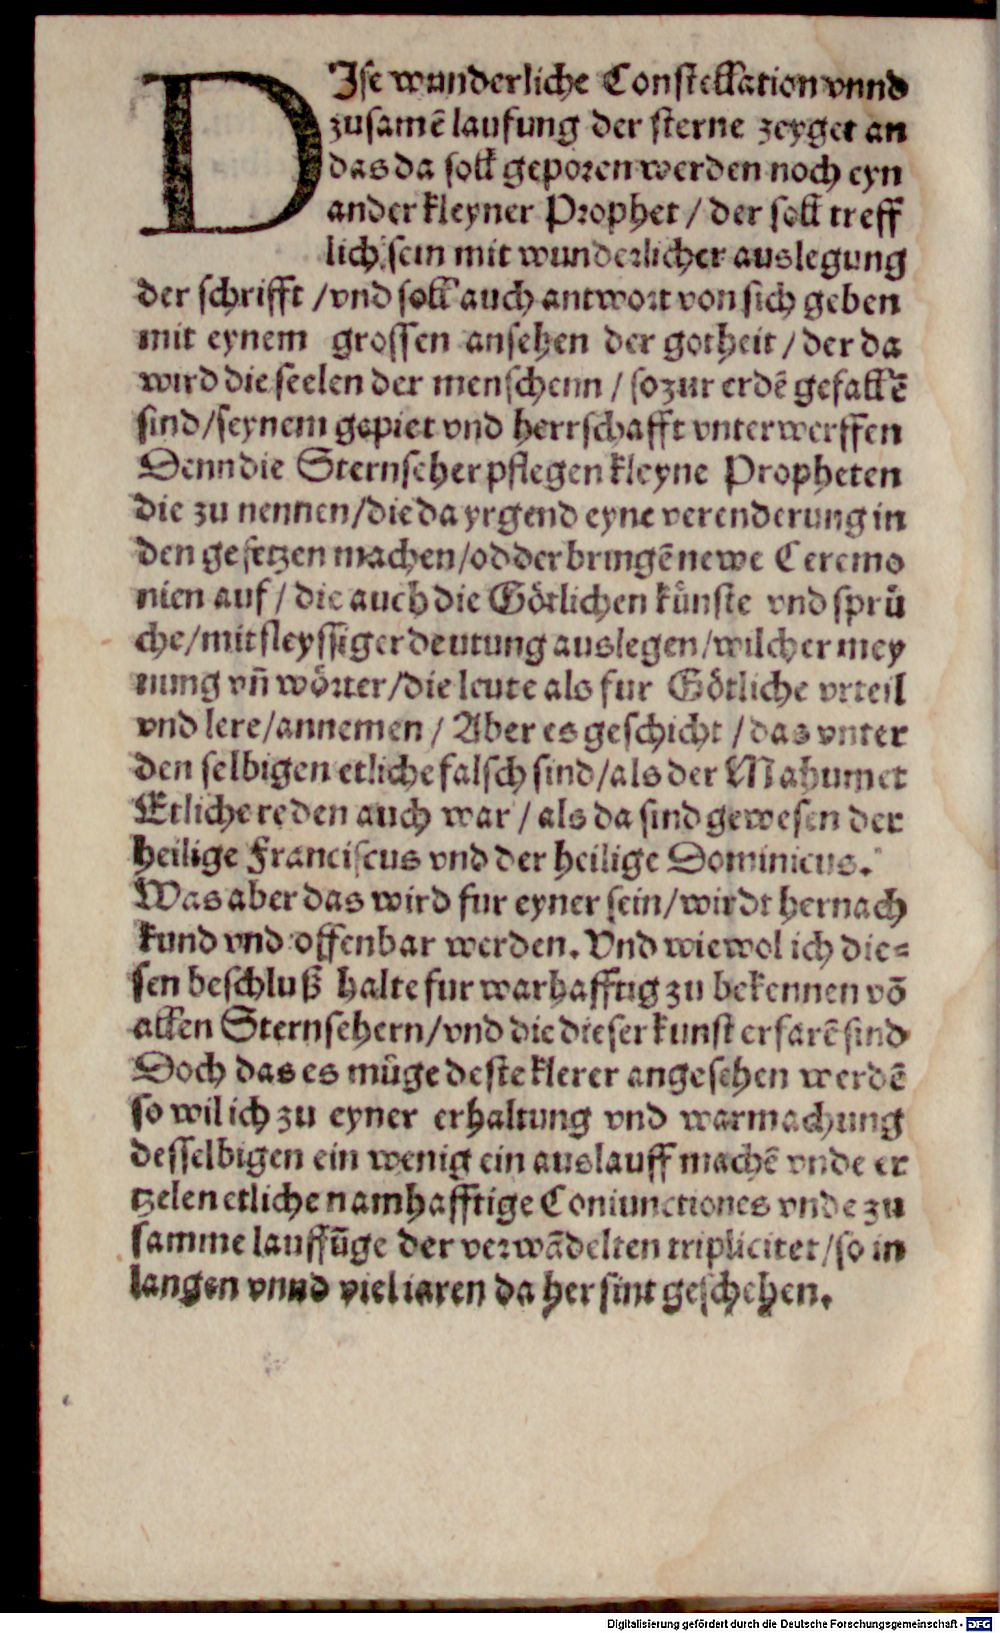 DIse wunderliche Constellation vnnd
zusamē laufung der sterne zeyget an
das da soll geporen werden noch eyn
ander kleyner Prophet / der soll treff
lich sein mit wunderlicher auslegung
der schrifft / vnd soll auch antwort von sich geben
mit eynem grossen ansehen der gotheit / der da
wird die seelen der menschenn / so zur erdē gefallē
sind / seynem gepiet vnd herrschafft vnterwerffen
Denn die Sternseher pflegen kleyne Propheten
die zu nennen / die da yrgend eyne verenderung in
den gesetzen machen / odder bringē newe Ceremo
nien auf / die auch die Götlichen künste vnd sprü
che / mit fleyssiger deutung auslegen / wilcher mey
nung vn̄ wörter / die leute als fur Götliche vrteil
vnd lere / annemen / Aber es geschicht / das vnter
den selbigen etliche falsch sind / als der Mahumet
Etliche reden auch war / als da sind gewesen der
heilige Franciscus vnd der heilige Dominicus.
Was aber das wird fur eyner sein / wirdt hernach
kund vnd offenbar werden. Vnd wiewol ich die=
sen beschluß halte fur warhafftig zu bekennen vō
allen Sternsehern / vnd die dieser kunst erfarē sind
Doch das es müge deste klerer angesehen werdē
so wil ich zu eyner erhaltung vnd warmachung
desselbigen ein wenig ein auslauff machē vnde er
tzelen etliche namhafftige Coniunctiones vnde zu
samme lauffūge der verwādelten triplicitet / so in
langen vnnd viel iaren da her sint geschehen.
Digitalisierung gefördert durch die Deutsche Forschungsgemeinschaft - DFG